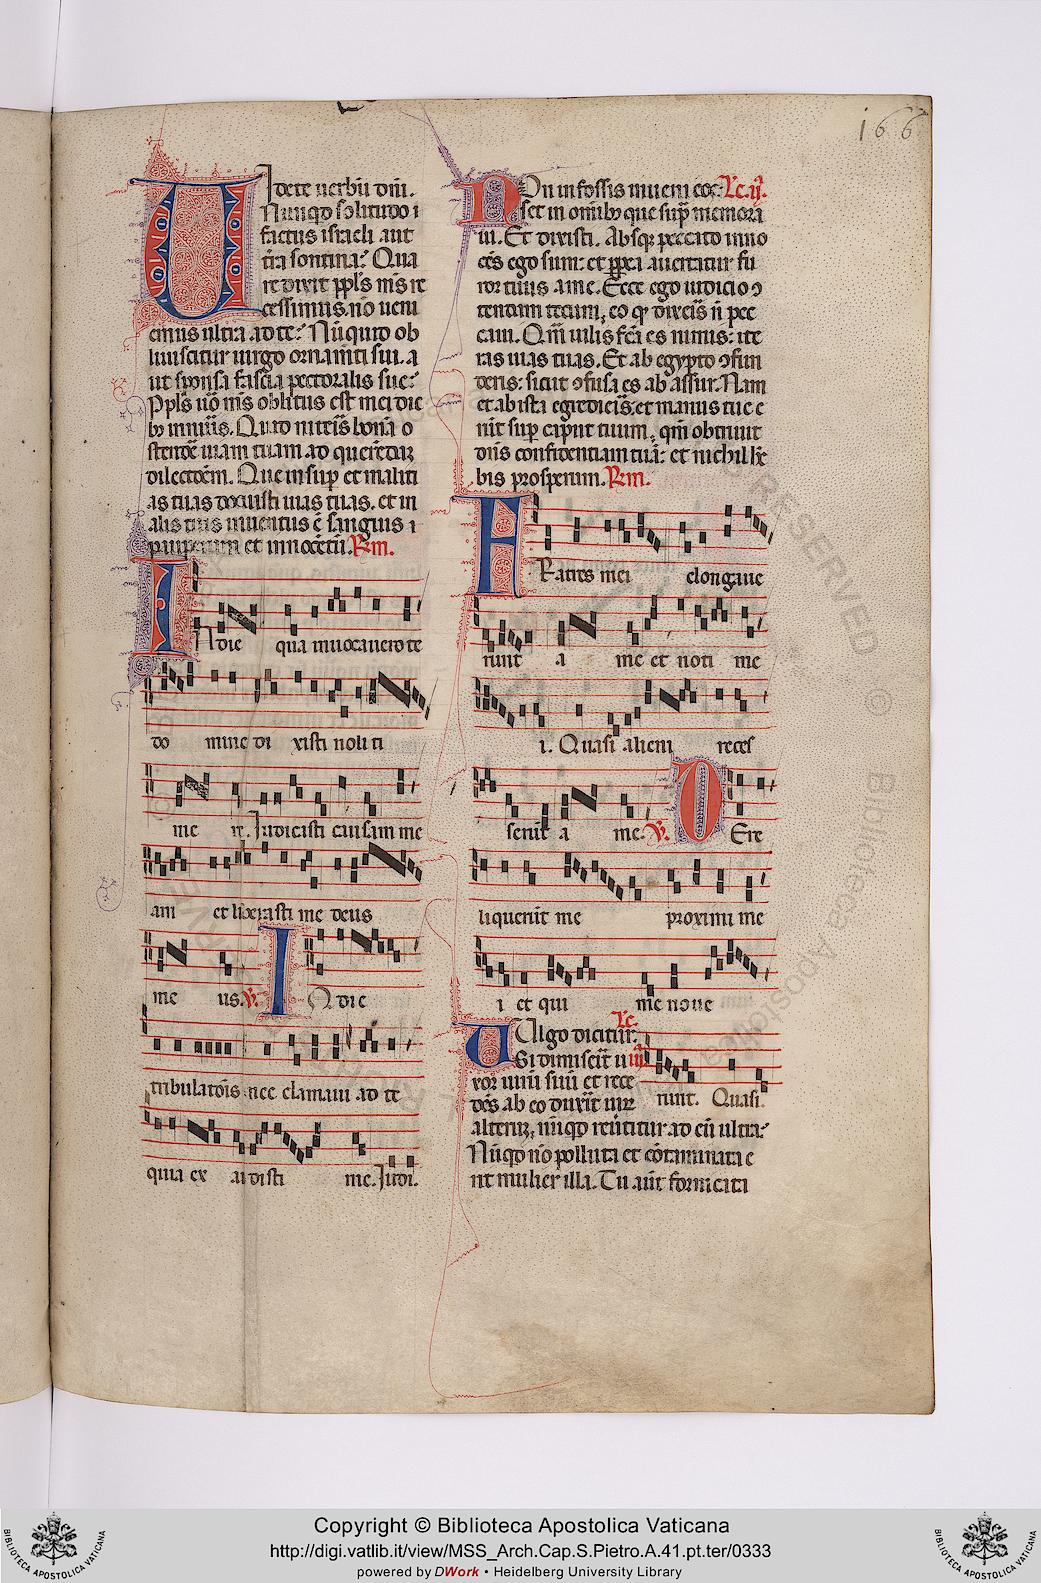 166
Uidete uerbū dni.
Nunqd solitudo i
factus israeli aut
t̄ra sontina? Qua
re dixit ppls ms re
cessimus. nō ueni
emus ultra ad te? Nūquid ob
liuiscitur uirgo ornam̄ti sui. a
ut sponsa fascia pectoralis sue?
Ppls uō ms oblitus est mei die
innūis. Quid niteris bonā o
stendē uiam tuam ad querēdā
dilectōem. Que insup et maliti
as tuas docuisti uias tuas. et in
alis tuis inuentus ē sanguis
pauperum et innocētū. Rm.
IN die qua inuocauero te
do mine di xisti noli ti
me re. Iudicasti causam me
am et liberasti me deus
me us. V. IN die
tribulatōis nec clamaui ad te
quia ex audisti me. Iudi.
NOn in fossis inueni eos. Lc. ij.
set in omib; que sup memora
ui. Et dixisti. Absq; peccato inno
cēs ego sum: et ppea auertatur fu
ror tuus a me. Ecce ego iudicio ɔ
tendam tecum, eo qr dixeis ñ pec
caui. Qm uilis fcā es nimis: ite
ras uias tuas. Et ab egypto ɔfun
deris: sicut ɔfusa es ab assur. Nam
et ab ista egredieris et manus tue e
nit sup caput tuum, qm obtriuit
dns confidentiam tuā: et nichil hē
bis prosperum. Rm.
FRatres mei elongaue
runt a me et noti me
i. Quasi alieni reces
serut a me. V. DEre
liquerūt me proximi me
i et qui me noue
Lc.
UUlgo dicitur.
Si dimiserit u iij
xor uirū suū et rece
dēs ab eo duxit uir runt. Quasi.
alterū, nūqd reūtitur ad eū ultra?
Nūqd nō polluta et cōtaminata e
rit mulier illa. Tu aūt fornicata
BIBLIOTECA APOSTOLICA VATICANA
Copyright © Biblioteca Apostolica Vaticana
http://digi.vatlib.it/view/MSS_Arch.Cap.S.Pietro.A.41.pt.ter/0333
powered by DWork • Heidelberg University Library
BIBLIOTECA APOSTOLICA VATICANA